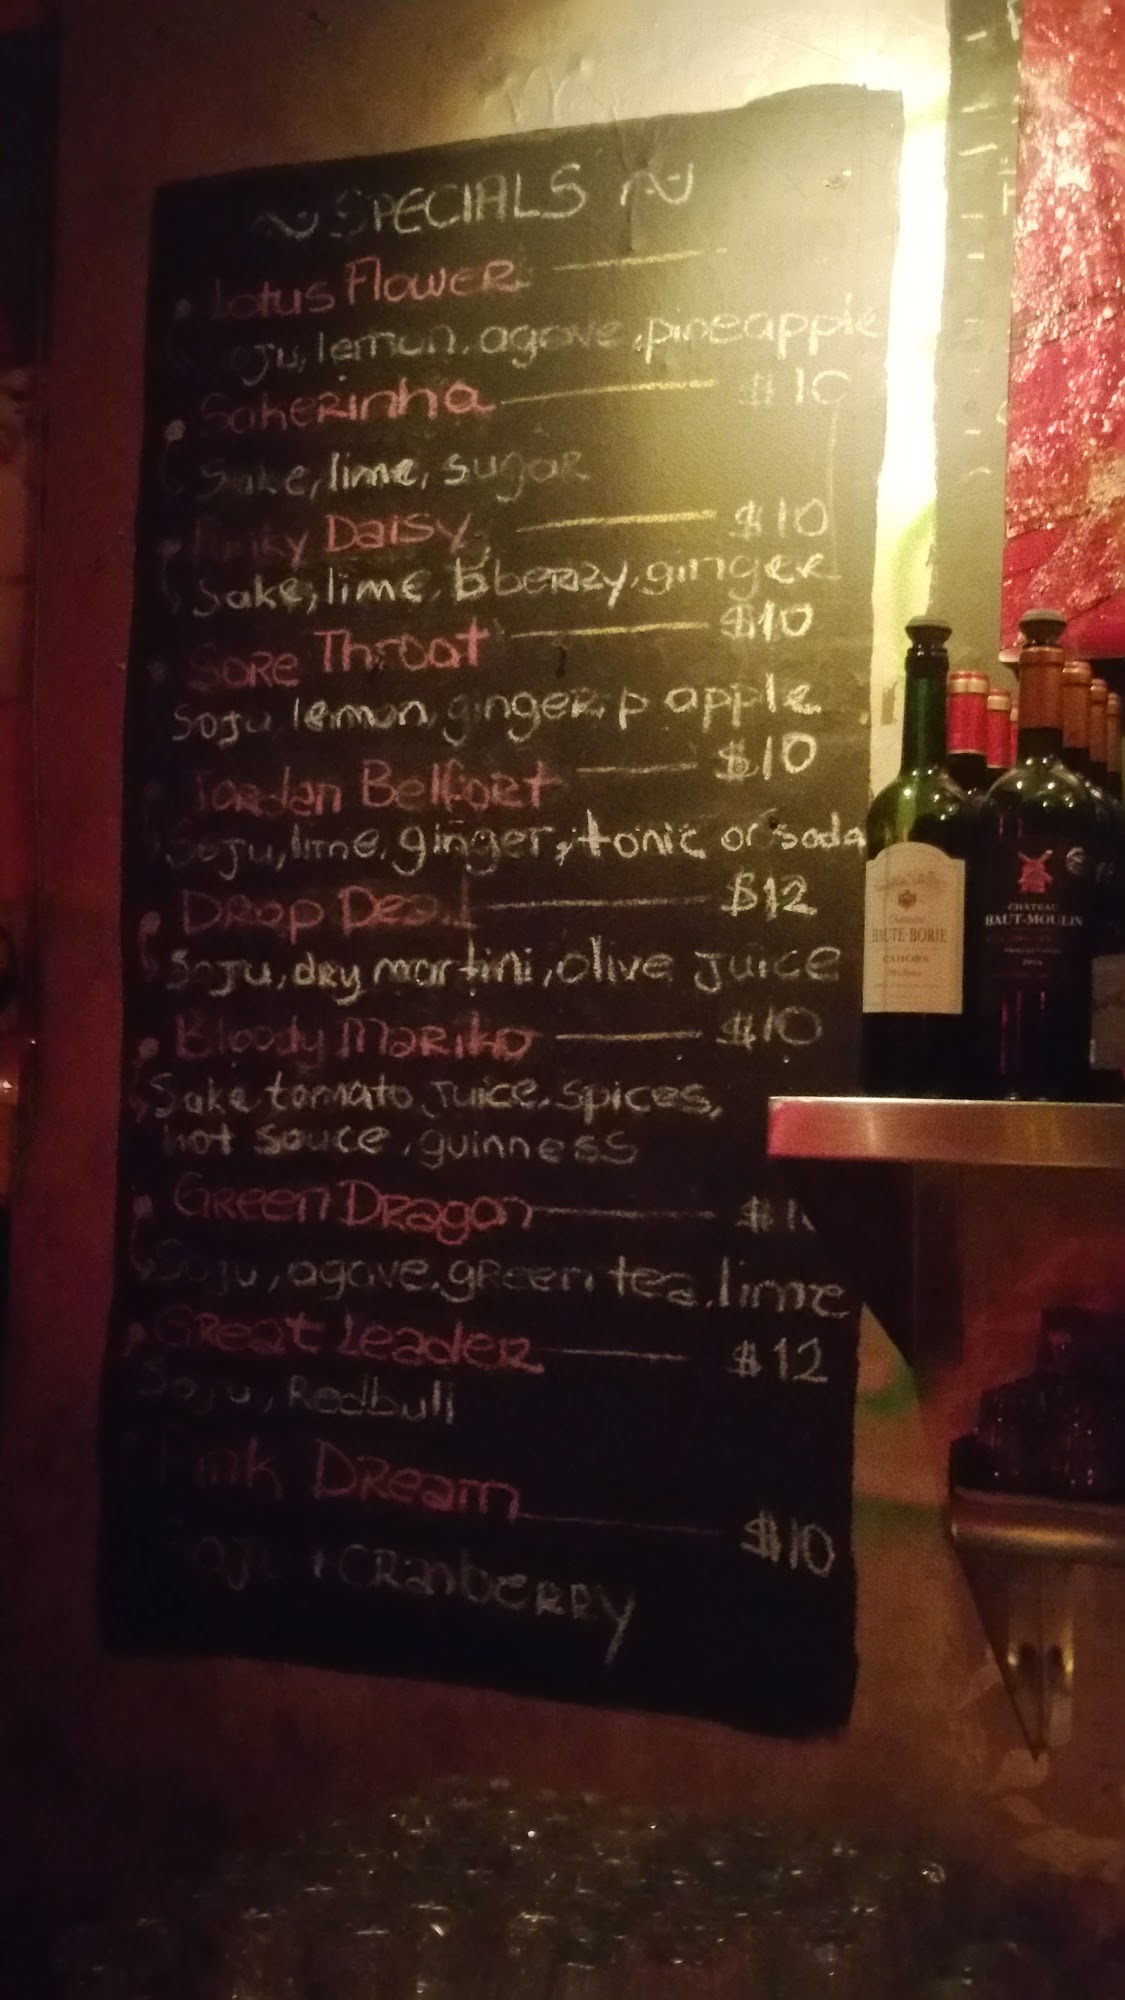 ~ SPECIALS ~
Lotus Flower
Soju, lemon, agave, pineapple
Sakerinha $10
Sake, lime, sugar
Daisy $10
Sake, lime, bberry, ginger
Sore Throat $10
Soju, lemon, ginger, p apple
Jordan Belfort $10
Soju, lime, ginger, tonic or soda
Drop Dead $12
Soju, dry martini, olive juice
Bloody Mariko $10
Sake, tomato, juice, spices,
hot sauce, guinness
Green Dragon
Soju, agave, green tea, lime
Great Leader $12
Soju, Redbull
Pink Dream $10
Soju + Cranberry
HAUTE-BORIE
CAHORS
CHÂTEAU
HAUT-MOULIN